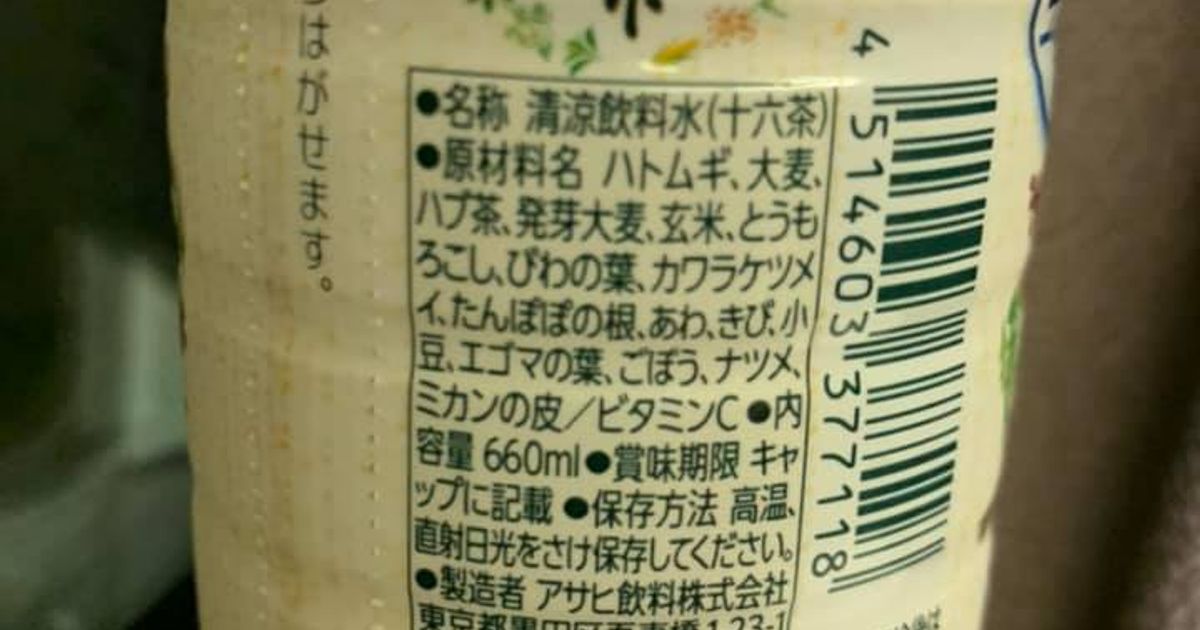 はがせます。
●名称 清涼飲料水(十六茶)
●原材料名 ハトムギ、大麦、
ハブ茶、発芽大麦、玄米、とうも
ろこし、びわの葉、カワラケツメ
イ、たんぽぽの根、あわ、きび、小
豆、エゴマの葉、ごぼう、ナツメ、
ミカンの皮/ビタミンC ●内
容量 660ml●賞味期限 キャ
ップに記載 ●保存方法 高温、
直射日光をさけ保存してください。
●製造者 アサヒ飲料株式会社
東京都墨田区吾妻橋1-23-1
4 514603 377118